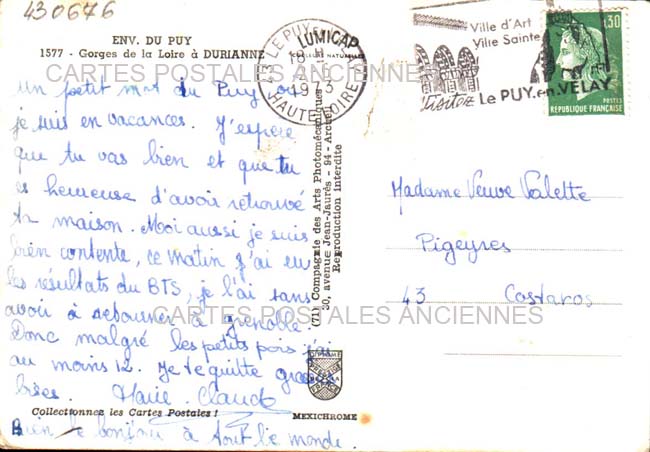 430676
ENV. DU PUY
1577 - Gorges de la Loire à DURIANNE
LUMICAP
COULEURS NATURELLES
43 LE PUY
18 H
1973
HAUTE-LOIRE
Ville d'Art
Ville Sainte
Visitez Le PUY.en.VELAY
0,30
POSTES
REPUBLIQUE FRANÇAISE
CARTES POSTALES ANCIENNES
un petit mot du Puy où
je suis en vacances. J'espère
que tu vas bien et que tu
es heureuse d'avoir retrouvé
ta maison. Moi aussi je suis
bien contente, ce matin j'ai eu
les résultats du BTS, je l'ai sans
avoir à retourner à Grenoble.
Donc malgré les petits pois j'ai
au moins 12. Je te quitte grosses
bises. Marie-Claude
Bien le bonjour à tout le monde.
(71) Compagnie des Arts Photomécaniques
30, avenue Jean-Jaurès - 94-Arcueil
Reproduction interdite
Madame Veuve Valette
Pigeyres
43 Costaros
CARTES POSTALES ANCIENNES
Collectionnez les Cartes Postales !
MEXICHROME